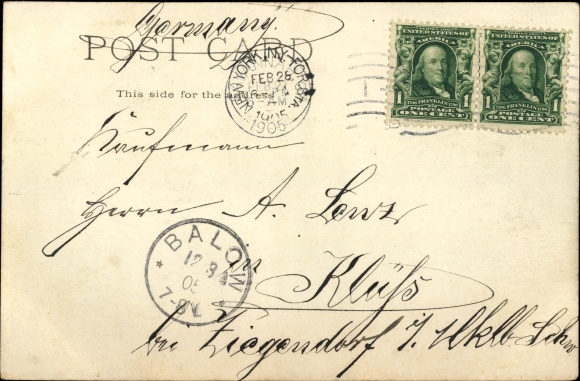 Germany.
POST CARD
This side for the address
NEW YORK, N.Y. FOR. STA.
FEB 28
AM
1905
UNITED STATES OF
AMERICA
1 FRANKLIN 1
POSTAGE
ONE CENT
UNITED STATES OF
AMERICA
1 FRANKLIN 1
POSTAGE
ONE CENT
Kaufmann
Herrn A.
in Klüss
BALOW
12 3
05
7-8V.
bei Ziegendorf i/ Mklb. Schw